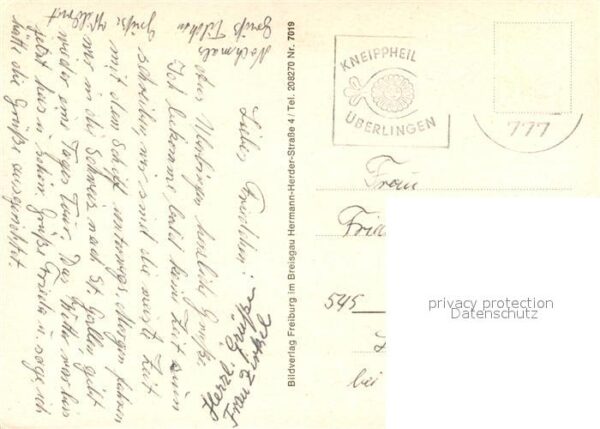 Liebes Friedchen!
Aus Überlingen herzliche Grüße.
Ich bekomme bald keine Zeit zum
schreiben, wir sind die meiste Zeit
mit dem Schiff unterwegs. Morgen fahren
wir in die Schweiz nach St. Gallen gibt
wieder eine Tages Tour. Das Wetter war bis
jetzt hier schön. Grüße Frieda u. sage ich
hätte die Grüße ausgerichtet.
Nochmals
Gruß
Grüße Hildegard
Herzl. Grüße
Frau Zinkel
Bildverlag Freiburg im Breisgau Hermann-Herder-Straße 4 / Tel. 208270 Nr. 7019
KNEIPPHEIL
ÜBERLINGEN
777
Frau
Frie
545
bei
privacy protection
Datenschutz